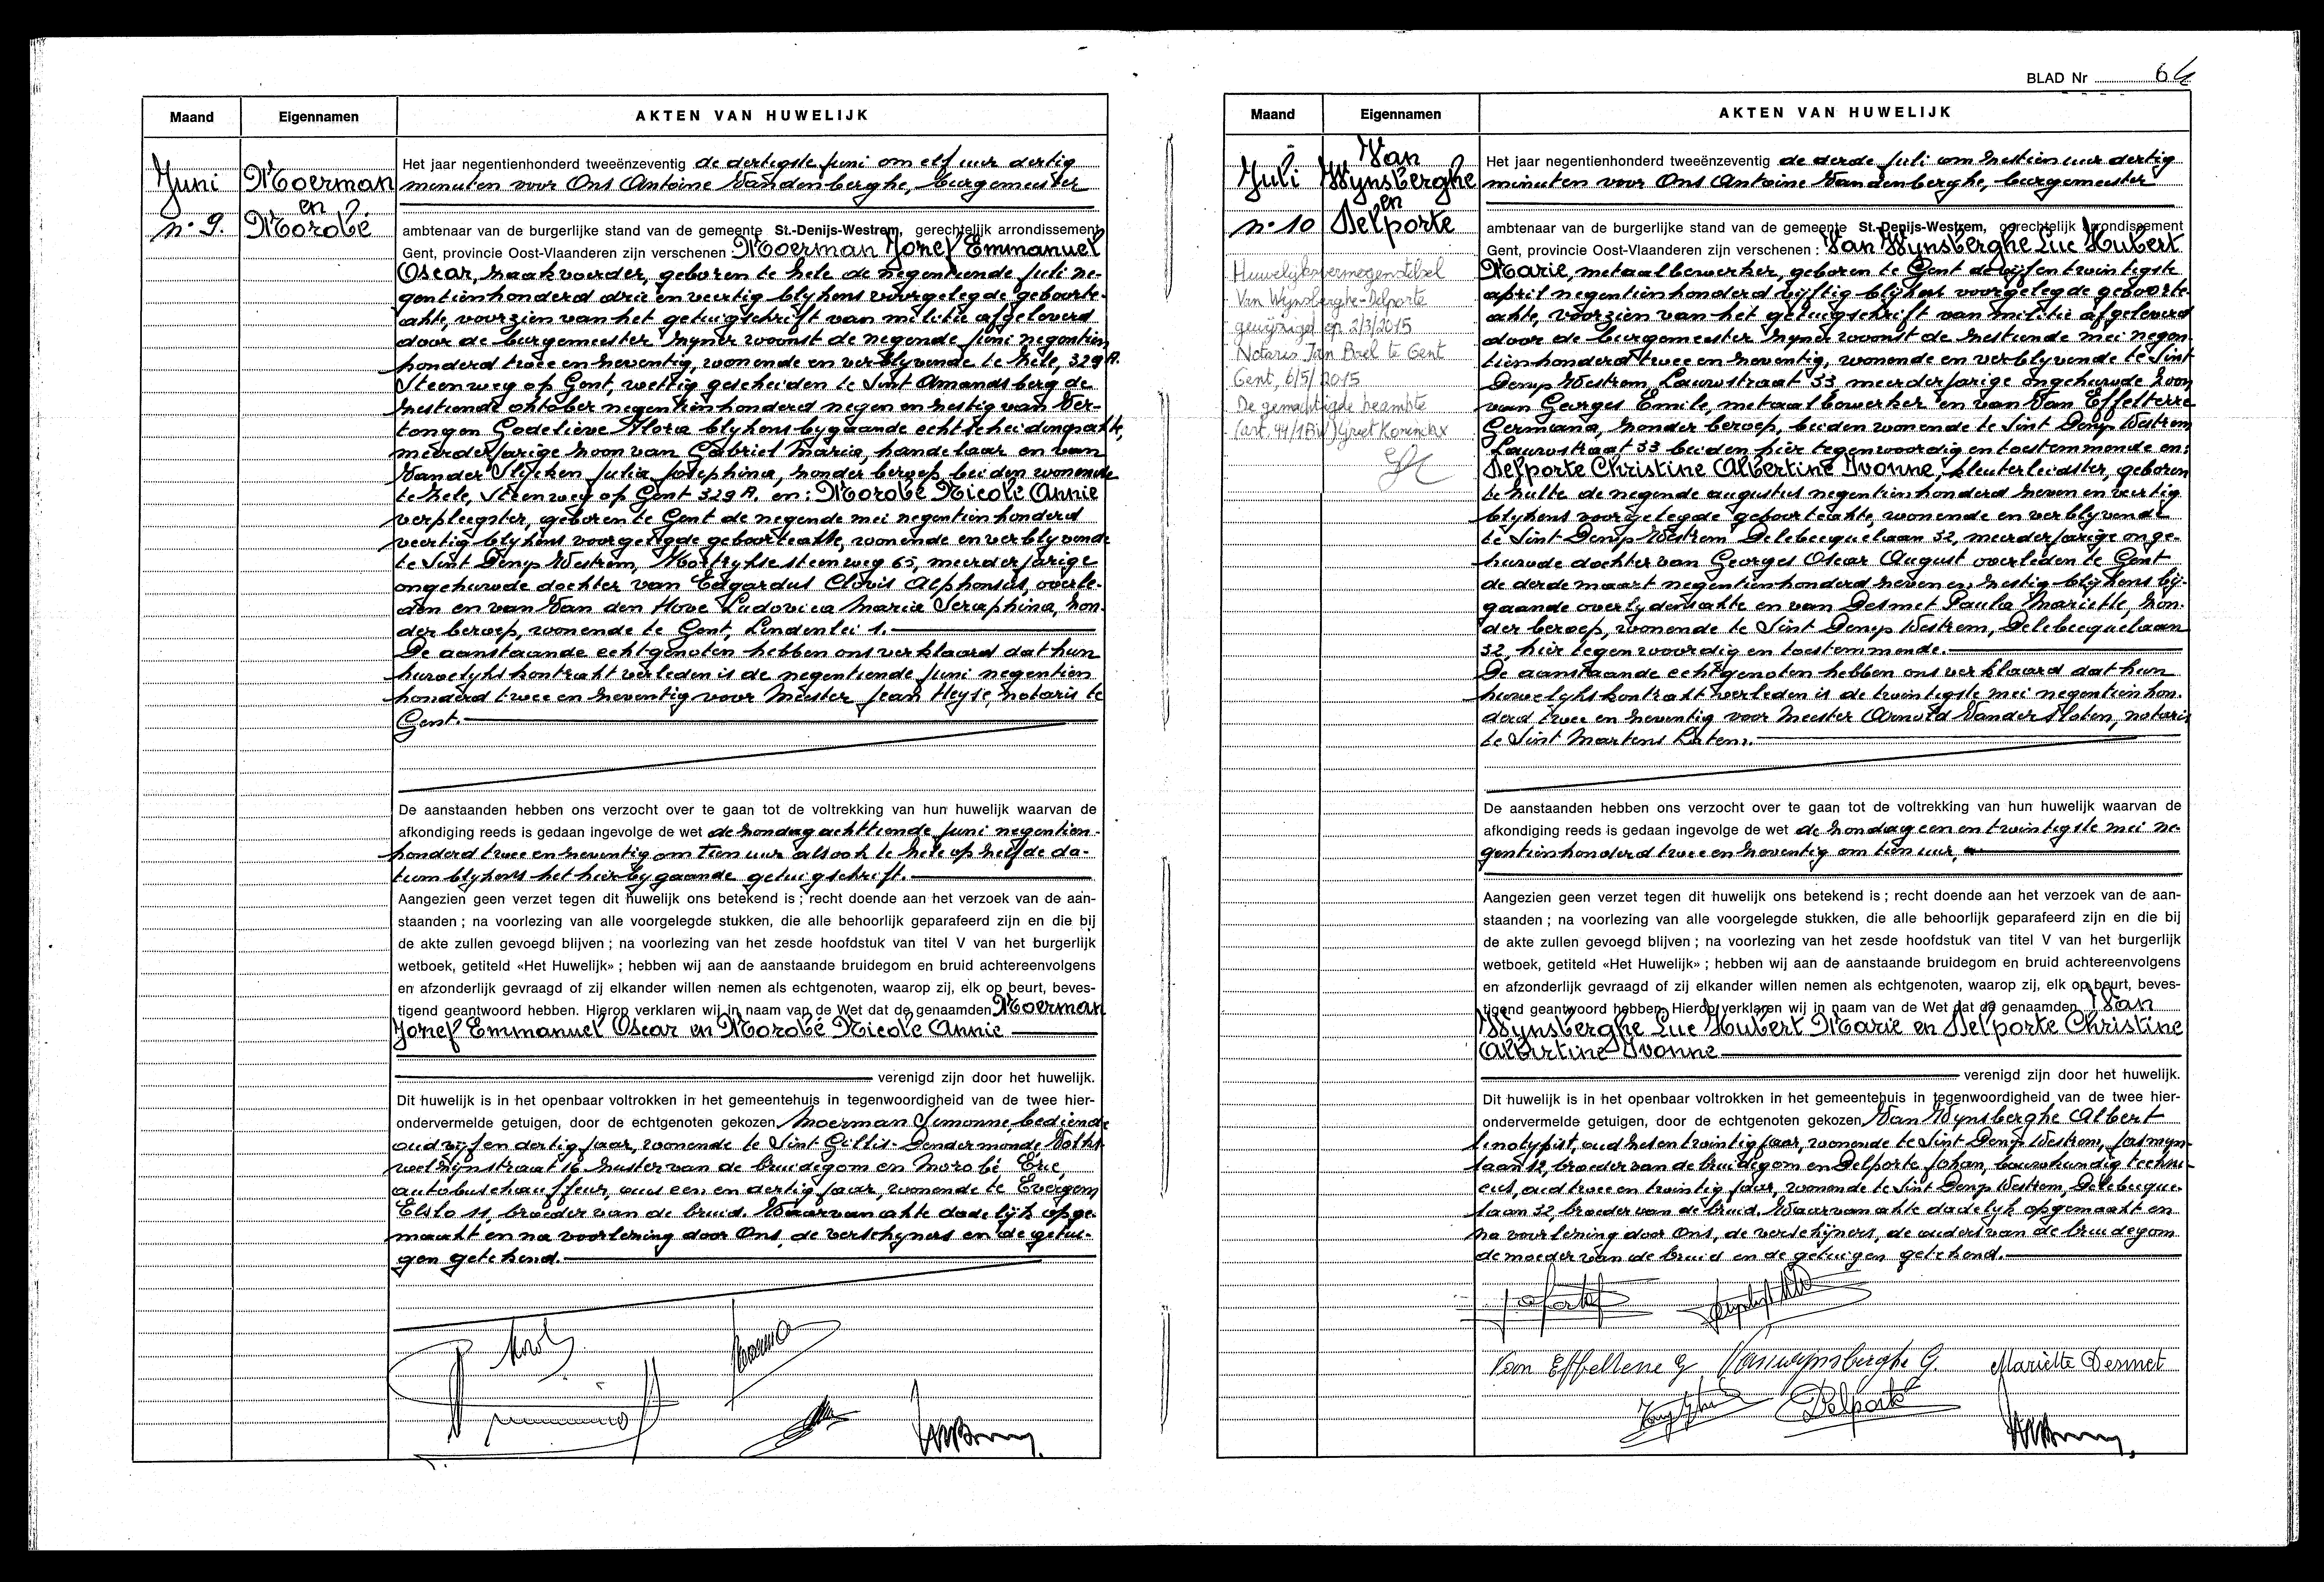 Maand
Eigennamen
AKTEN VAN HUWELIJK
Juni
n° 9.
Moerman
en
Morobé
Het jaar negentienhonderd tweeënzeventig de dertigste juni om elf uur dertig
minuten voor Ons Antoine Vandenberghe, burgemeester
ambtenaar van de burgerlijke stand van de gemeente St.-Denijs-Westrem, gerechtelijk arrondissement
Gent, provincie Oost-Vlaanderen zijn verschenen Moerman Jozef Emmanuel
Oscar, zaakvoerder, geboren te Zele de negentiende juli ne-
gentienhonderd drie en veertig blijkens voorgelegde geboorte-
akte, voorzien van het getuigschrift van militie afgeleverd
door de burgemeester zijner woonst de negende juni negentien
honderd twee en zeventig, wonende en verblijvende te Zele, 329 A.
Steenweg op Gent, wettig gescheiden te Sint Amandsberg de
zestiende oktober negentienhonderd negen en zestig van Ver-
tongen Godelieve Flora blijkens bijgaande echtscheidingsakte,
meerderjarige zoon van Gabriel Maria, handelaar en van
Vander Slycken Julia Josephina, zonder beroep, beiden wonende
te Zele, Steenweg op Gent 329 A. en: Morobé Nicole Annie
verpleegster, geboren te Gent de negende mei negentienhonderd
veertig blijkens voorgelegde geboorteakte, wonende en verblijvende
te Sint Denijs Westrem, Kortrijksesteenweg 65, meerderjarige
ongehuwde dochter van Edgardus Clovis Alphonsus, overle-
den en van Van den Hove Ludovica Maria Seraphina, zon-
der beroep, wonende te Gent, Lindenlei 1.
De aanstaande echtgenoten hebben ons verklaard dat hun
huwelijkskontrakt verleden is de negentiende juni negentien
honderd twee en zeventig voor Meester Jean Heyse, notaris te
Gent.
De aanstaanden hebben ons verzocht over te gaan tot de voltrekking van hun huwelijk waarvan de
afkondiging reeds is gedaan ingevolge de wet de zondag achttiende juni negentien-
honderd twee en zeventig om tien uur alsook te Zele op zelfde da-
tum blijkens het hierbijgaande getuigschrift.
Aangezien geen verzet tegen dit huwelijk ons betekend is ; recht doende aan het verzoek van de aan-
staanden ; na voorlezing van alle voorgelegde stukken, die alle behoorlijk geparafeerd zijn en die bij
de akte zullen gevoegd blijven ; na voorlezing van het zesde hoofdstuk van titel V van het burgerlijk
wetboek, getiteld «Het Huwelijk» ; hebben wij aan de aanstaande bruidegom en bruid achtereenvolgens
en afzonderlijk gevraagd of zij elkander willen nemen als echtgenoten, waarop zij, elk op beurt, beves-
tigend geantwoord hebben. Hierop verklaren wij in naam van de Wet dat de genaamden Moerman
Jozef Emmanuel Oscar en Morobé Nicole Annie
verenigd zijn door het huwelijk.
Dit huwelijk is in het openbaar voltrokken in het gemeentehuis in tegenwoordigheid van de twee hier-
ondervermelde getuigen, door de echtgenoten gekozen Moerman Simonne, bediende
oud vijf en dertig jaar, wonende te Sint Gillis-Dendermonde,
16 zuster van de bruidegom en Morobé Eric,
autobuschauffeur, oud een en dertig jaar, wonende te Evergem
Elslo 11, broeder van de bruid. Waarvan akte dadelijk opge-
maakt en na voorlezing door Ons, de verschijners en de getui-
gen getekend.
BLAD Nr 64
Maand
Eigennamen
AKTEN VAN HUWELIJK
Juli
n° 10
Van
Wynsberghe
en
Delporte
Huwelijksvermogenstelsel
Van Wynsberghe-Delporte
gewijzigd op 2/3/2015
Notaris Jan Boel te Gent
Gent, 6/5/2015
De gemachtigde beambte
(art. 99/1BW) Greet Koninckx
Het jaar negentienhonderd tweeënzeventig de derde juli om zestien uur dertig
minuten voor Ons Antoine Vandenberghe, burgemeester
ambtenaar van de burgerlijke stand van de gemeente St.-Denijs-Westrem, gerechtelijk arrondissement
Gent, provincie Oost-Vlaanderen zijn verschenen : Van Wynsberghe Luc Hubert
Marie, metaalbewerker, geboren te Gent de vijfentwintigste
april negentienhonderd vijftig blijkens voorgelegde geboorte-
akte, voorzien van het getuigschrift van militie afgeleverd
door de burgemeester zijner woonst de zestiende mei negen
tienhonderd twee en zeventig, wonende en verblijvende te Sint
Denijs Westrem, Laurstraat 33 meerderjarige ongehuwde zoon
van Georges Emile, metaalbewerker en van Van Effelterre
Germana, zonder beroep, beiden wonende te Sint Denijs Westrem
Laurstraat 33 beiden hier tegenwoordig en toestemmende en:
Delporte Christine Albertine Ivonne, kleuterleidster, geboren
te Zulte de negende augustus negentienhonderd zeven en veertig
blijkens voorgelegde geboorteakte, wonende en verblijvende
te Sint Denijs Westrem Delebecquelaan 32, meerderjarige onge-
huwde dochter van Georges Oscar August overleden te Gent
de derde maart negentienhonderd zeven en zestig blijkens bij-
gaande overlijdensakte en van Desmet Paula Mariette, zon-
der beroep, wonende te Sint Denijs Westrem, Delebecquelaan
32, hier tegenwoordig en toestemmende.
De aanstaande echtgenoten hebben ons verklaard dat hun
huwelijkskontrakt verleden is de twintigste mei negentienhon-
derd twee en zeventig voor Meester Arnold Vander Sloten, notaris
te Sint Martens Latem.
De aanstaanden hebben ons verzocht over te gaan tot de voltrekking van hun huwelijk waarvan de
afkondiging reeds is gedaan ingevolge de wet de zondag een en twintigste mei ne-
gentienhonderd twee en zeventig om tien uur,
Aangezien geen verzet tegen dit huwelijk ons betekend is ; recht doende aan het verzoek van de aan-
staanden ; na voorlezing van alle voorgelegde stukken, die alle behoorlijk geparafeerd zijn en die bij
de akte zullen gevoegd blijven ; na voorlezing van het zesde hoofdstuk van titel V van het burgerlijk
wetboek, getiteld «Het Huwelijk» ; hebben wij aan de aanstaande bruidegom en bruid achtereenvolgens
en afzonderlijk gevraagd of zij elkander willen nemen als echtgenoten, waarop zij, elk op beurt, beves-
tigend geantwoord hebben. Hierop verklaren wij in naam van de Wet dat de genaamden Van
Wynsberghe Luc Hubert Marie en Delporte Christine
Albertine Ivonne
verenigd zijn door het huwelijk.
Dit huwelijk is in het openbaar voltrokken in het gemeentehuis in tegenwoordigheid van de twee hier-
ondervermelde getuigen, door de echtgenoten gekozen Van Wynsberghe Albert
linotypist, oud zesentwintig jaar, wonende te Sint Denijs Westrem, Jasmyn-
laan 12, broeder van de bruidegom en Delporte Johan, bouwkundig techni-
cus, oud twee en twintig jaar, wonende te Sint Denijs Westrem, Delebecque-
laan 32, broeder van de bruid. Waarvan akte dadelijk opgemaakt en
na voorlezing door Ons, de verschijners, de ouders van de bruidegom
de moeder van de bruid en de getuigen getekend.
Van Effelterre G. Vanwynsberghe G. Mariette Desmet
Delporte